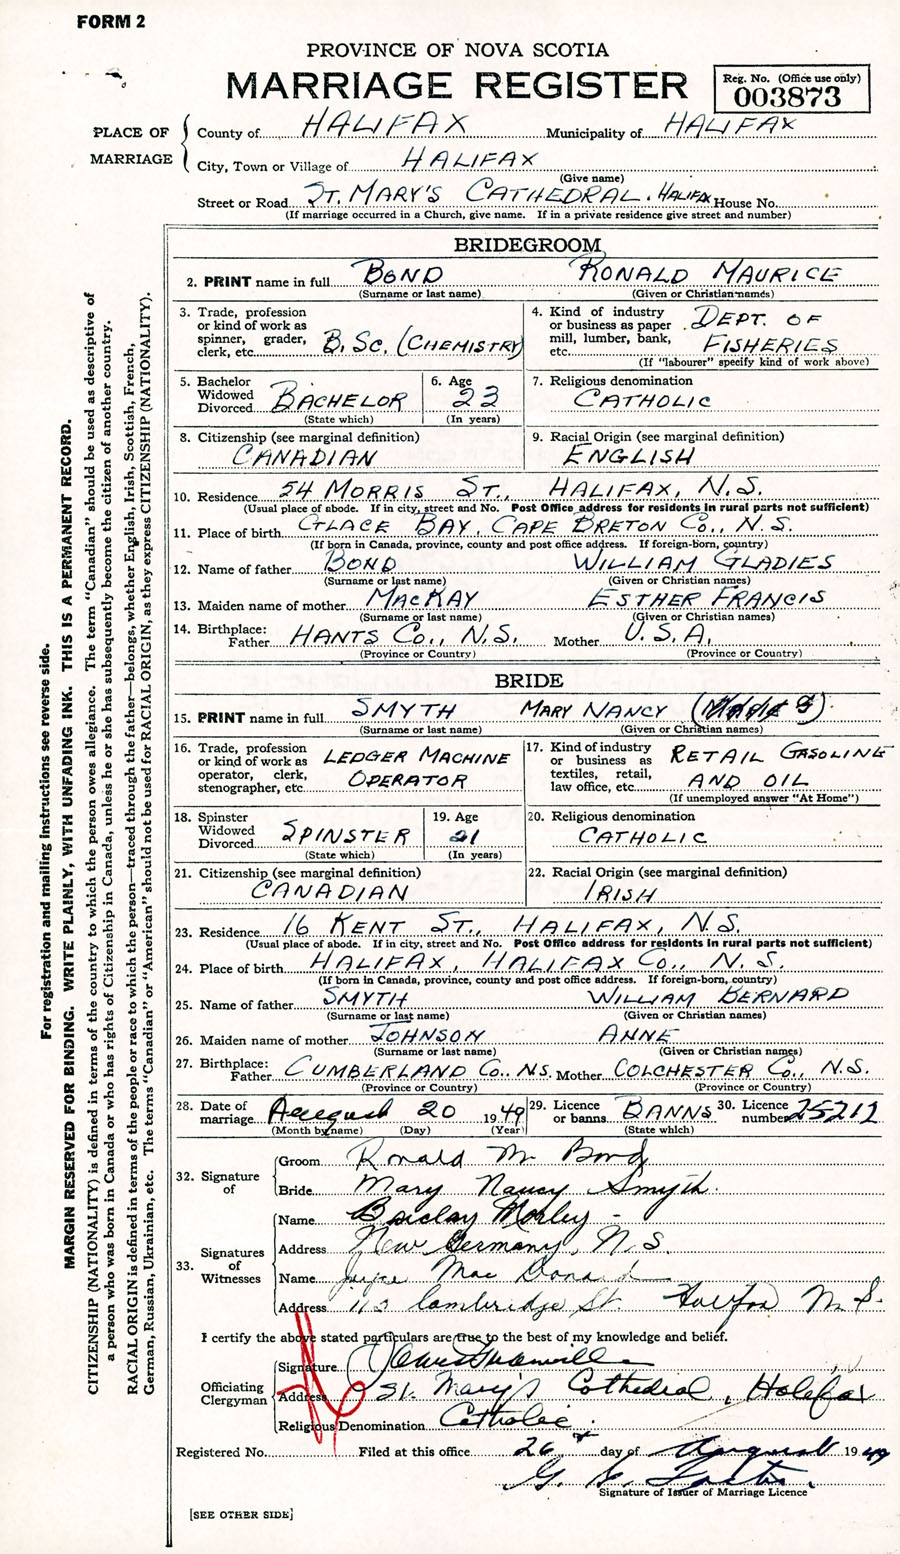 FORM 2
PROVINCE OF NOVA SCOTIA
MARRIAGE REGISTER
Reg. No. (Office use only)
003873
PLACE OF MARRIAGE
County of HALIFAX Municipality of HALIFAX
City, Town or Village of HALIFAX
(Give name)
Street or Road ST. MARY'S CATHEDRAL. HALIFAX House No.
(If marriage occurred in a Church, give name. If in a private residence give street and number)
BRIDEGROOM
2. PRINT name in full BOND RONALD MAURICE
(Surname or last name) (Given or Christian names)
3. Trade, profession or kind of work as spinner, grader, clerk, etc. B. SC. (CHEMISTRY)
4. Kind of industry or business as paper mill, lumber, bank, etc. DEPT. OF FISHERIES
(If "labourer" specify kind of work above)
5. Bachelor Widowed Divorced BACHELOR
(State which)
6. Age 23
(In years)
7. Religious denomination
CATHOLIC
8. Citizenship (see marginal definition)
CANADIAN
9. Racial Origin (see marginal definition)
ENGLISH
10. Residence 54 MORRIS ST., HALIFAX, N.S.
(Usual place of abode. If in city, street and No. Post Office address for residents in rural parts not sufficient)
11. Place of birth GLACE BAY, CAPE BRETON CO., N.S.
(If born in Canada, province, county and post office address. If foreign-born, country)
12. Name of father BOND WILLIAM GLADIES
(Surname or last name) (Given or Christian names)
13. Maiden name of mother MACKAY ESTHER FRANCIS
(Surname or last name) (Given or Christian names)
14. Birthplace: Father HANTS CO., N.S. Mother U.S.A.
(Province or Country) (Province or Country)
BRIDE
15. PRINT name in full SMYTH MARY NANCY
(Surname or last name) (Given or Christian names)
16. Trade, profession or kind of work as operator, clerk, stenographer, etc. LEDGER MACHINE OPERATOR
17. Kind of industry or business as textiles, retail, law office, etc. RETAIL GASOLINE AND OIL
(If unemployed answer "At Home")
18. Spinster Widowed Divorced SPINSTER
(State which)
19. Age 21
(In years)
20. Religious denomination
CATHOLIC
21. Citizenship (see marginal definition)
CANADIAN
22. Racial Origin (see marginal definition)
IRISH
23. Residence 16 KENT ST., HALIFAX, N.S.
(Usual place of abode. If in city, street and No. Post Office address for residents in rural parts not sufficient)
24. Place of birth HALIFAX, HALIFAX CO., N.S.
(If born in Canada, province, county and post office address. If foreign-born, country)
25. Name of father SMYTH WILLIAM BERNARD
(Surname or last name) (Given or Christian names)
26. Maiden name of mother JOHNSON ANNE
(Surname or last name) (Given or Christian names)
27. Birthplace: Father CUMBERLAND CO., N.S. Mother COLCHESTER CO., N.S.
(Province or Country) (Province or Country)
28. Date of marriage August 20 1949
(Month by name) (Day) (Year)
29. Licence or banns BANNS
(State which)
30. Licence number 25212
32. Signature of
Groom Ronald M Bond
Bride Mary Nancy Smyth.
33. Signatures of Witnesses
Name Barclay Morley
Address New Germany, N.S.
Name Joyce Mac Donald
Address 113 Cambridge St. Halifax N.S.
I certify the above stated particulars are true to the best of my knowledge and belief.
Officiating Clergyman
Signature
Address St. Mary's Cathedral, Halifax
Religious Denomination Catholic.
Registered No. Filed at this office 26 day of August 1949
Signature of Issuer of Marriage Licence
[SEE OTHER SIDE]
For registration and mailing instructions see reverse side.
MARGIN RESERVED FOR BINDING. WRITE PLAINLY, WITH UNFADING INK. THIS IS A PERMANENT RECORD.
CITIZENSHIP (NATIONALITY) is defined in terms of the country to which the person owes allegiance. The term "Canadian" should be used as descriptive of
a person who was born in Canada or who has rights of Citizenship in Canada, unless he or she has subsequently become the citizen of another country.
RACIAL ORIGIN is defined in terms of the people or race to which the person—traced through the father—belongs, whether English, Irish, Scottish, French,
German, Russian, Ukrainian, etc. The terms "Canadian" or "American" should not be used for RACIAL ORIGIN, as they express CITIZENSHIP (NATIONALITY).